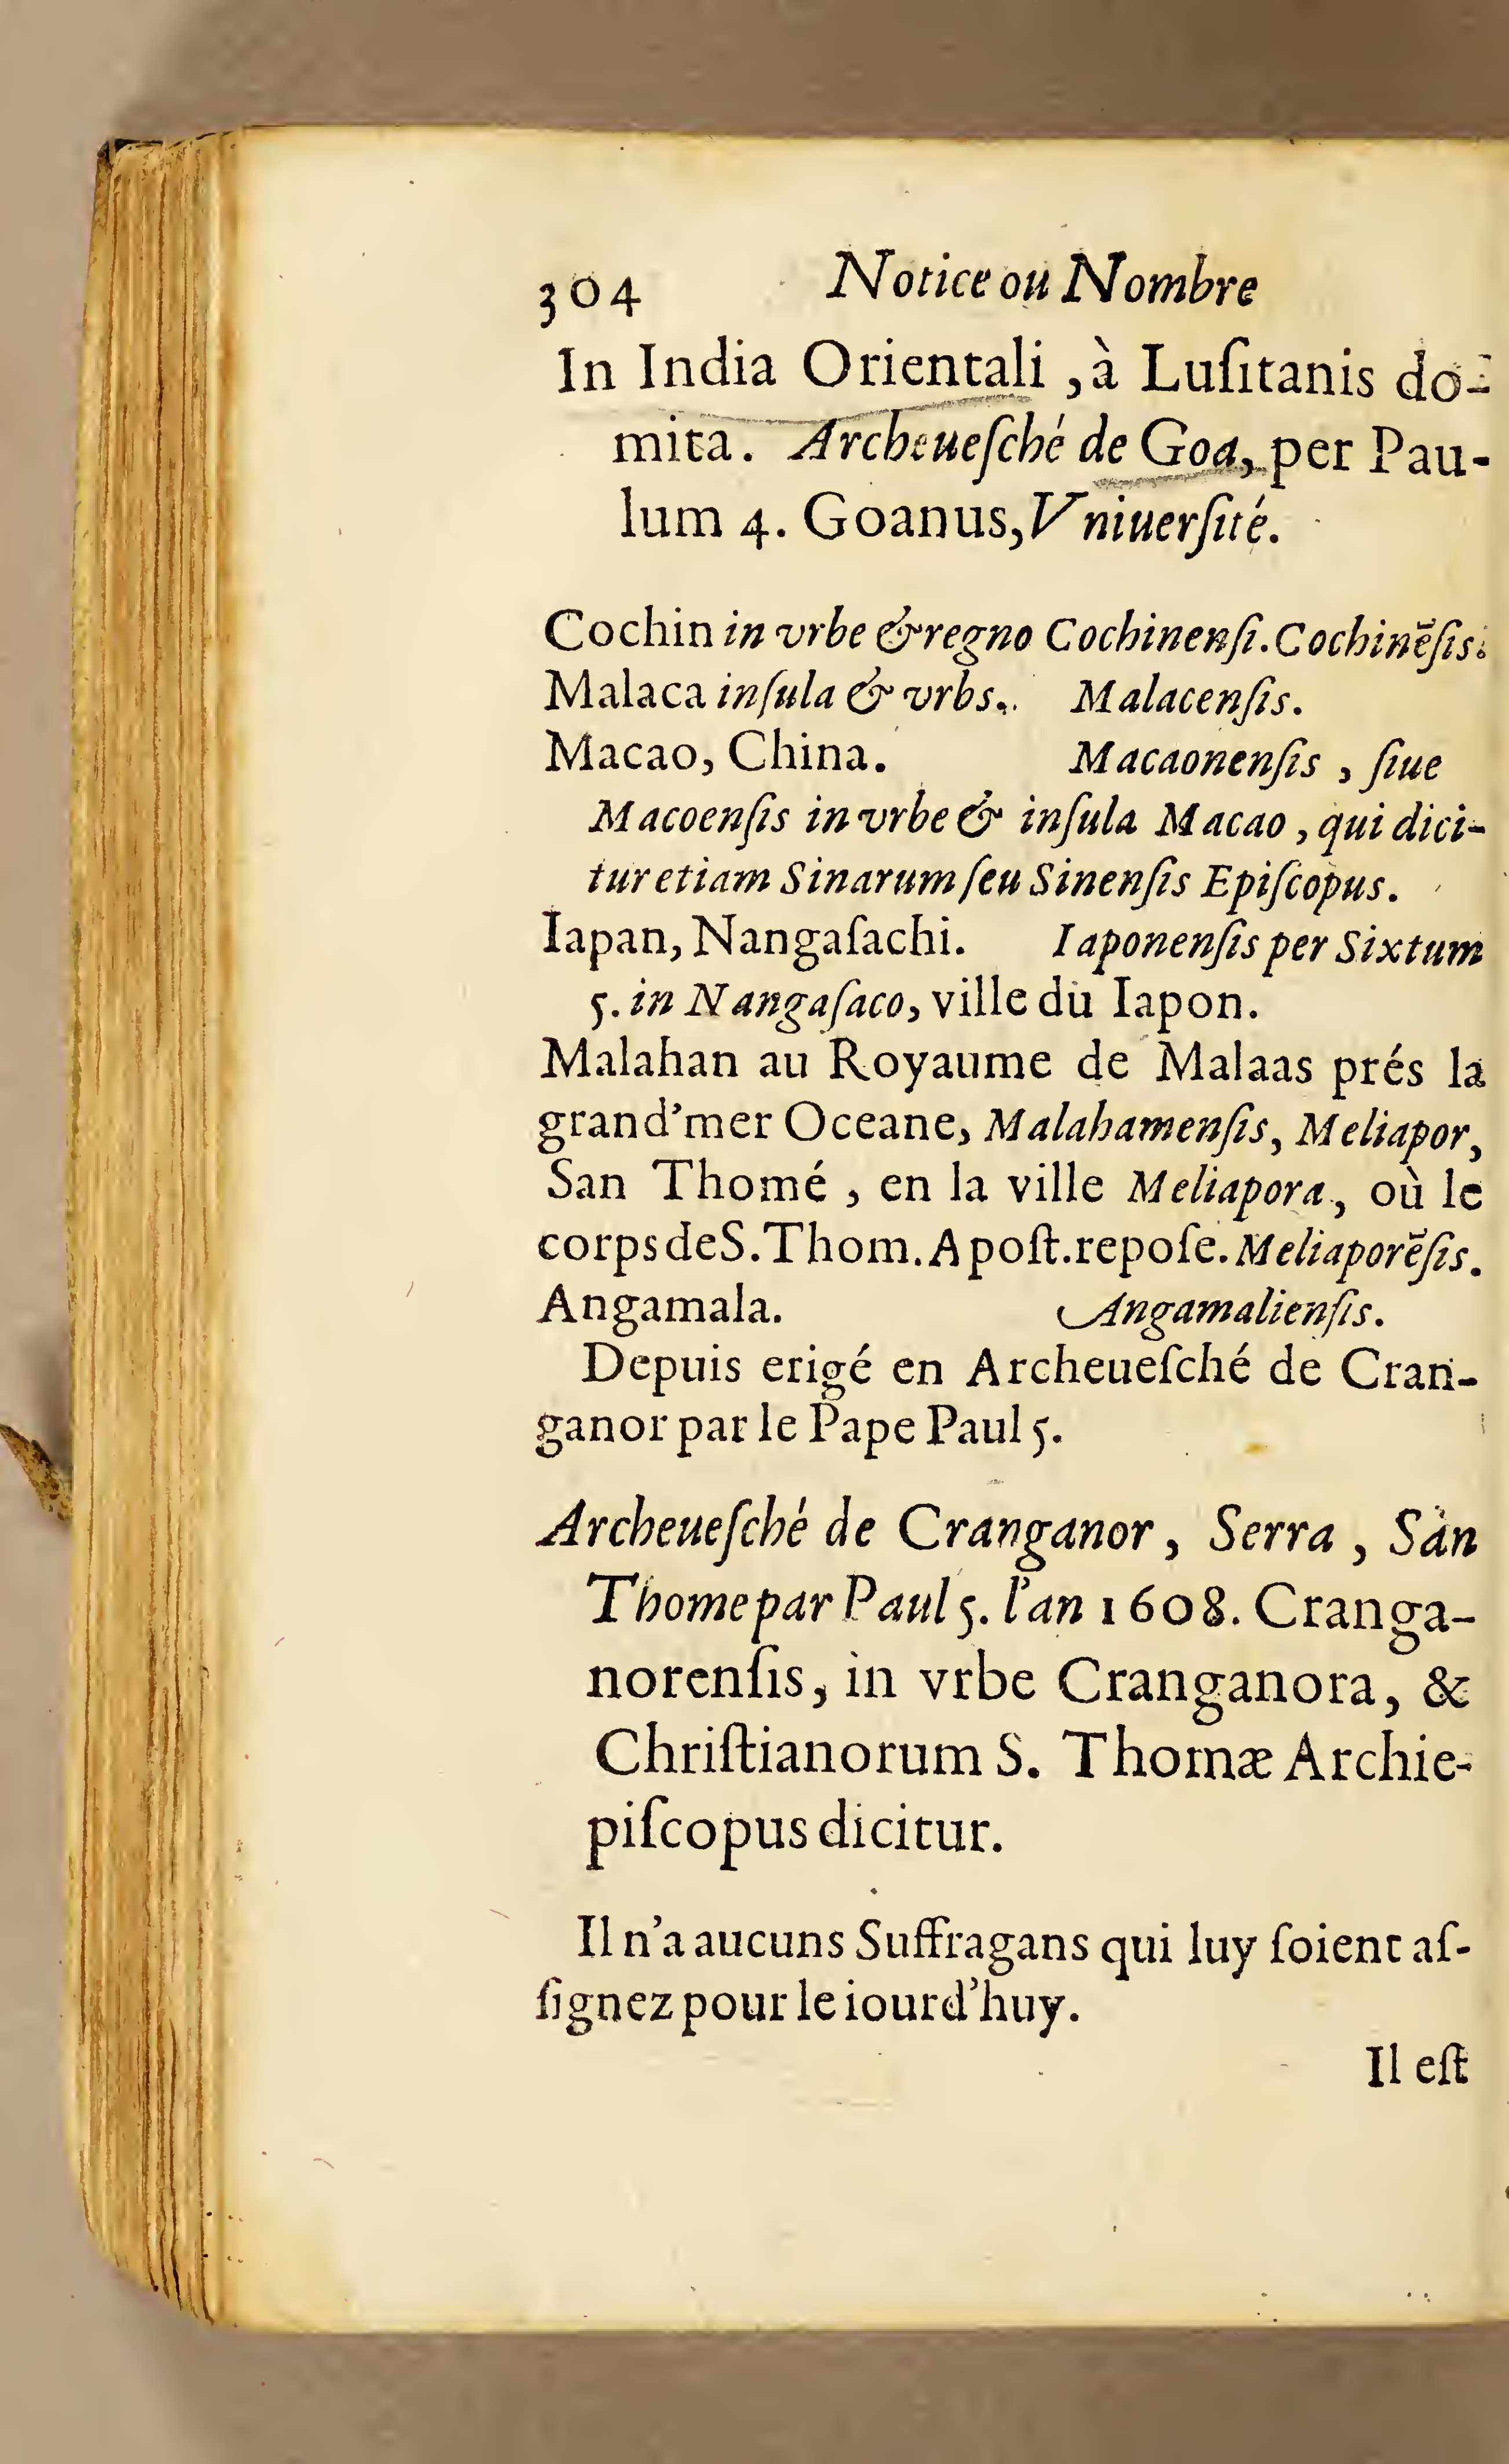 304 Notice ou Nombre
In India Orientali , à Luſitanis do-
mita. Archeueſché de Goa, per Pau-
lum 4. Goanus, Vniuerſité.
Cochin in vrbe & regno Cochinenſi. Cochinẽſis.
Malaca inſula & vrbs. Malacenſis.
Macao, China. Macaonenſis , ſiue
Macoenſis in vrbe & inſula Macao , qui dici-
tur etiam Sinarum ſeu Sinenſis Epiſcopus.
Iapan, Nangaſachi. Iaponenſis per Sixtum
5. in Nangaſaco, ville du Iapon.
Malahan au Royaume de Malaas prés la
grand'mer Oceane, Malahamenſis, Meliapor,
San Thomé , en la ville Meliapora, où le
corps de S. Thom. Apoſt. repoſe. Meliaporẽſis.
Angamala. Angamalienſis.
Depuis erigé en Archeueſché de Cran-
ganor par le Pape Paul 5.
Archeueſché de Cranganor , Serra , San
Thome par Paul 5. l'an 1608. Cranga-
norenſis, in vrbe Cranganora, &
Chriſtianorum S. Thomæ Archie-
piſcopus dicitur.
Il n'a aucuns Suffragans qui luy ſoient aſ-
ſignez pour le iourd'huy.
Il eſt